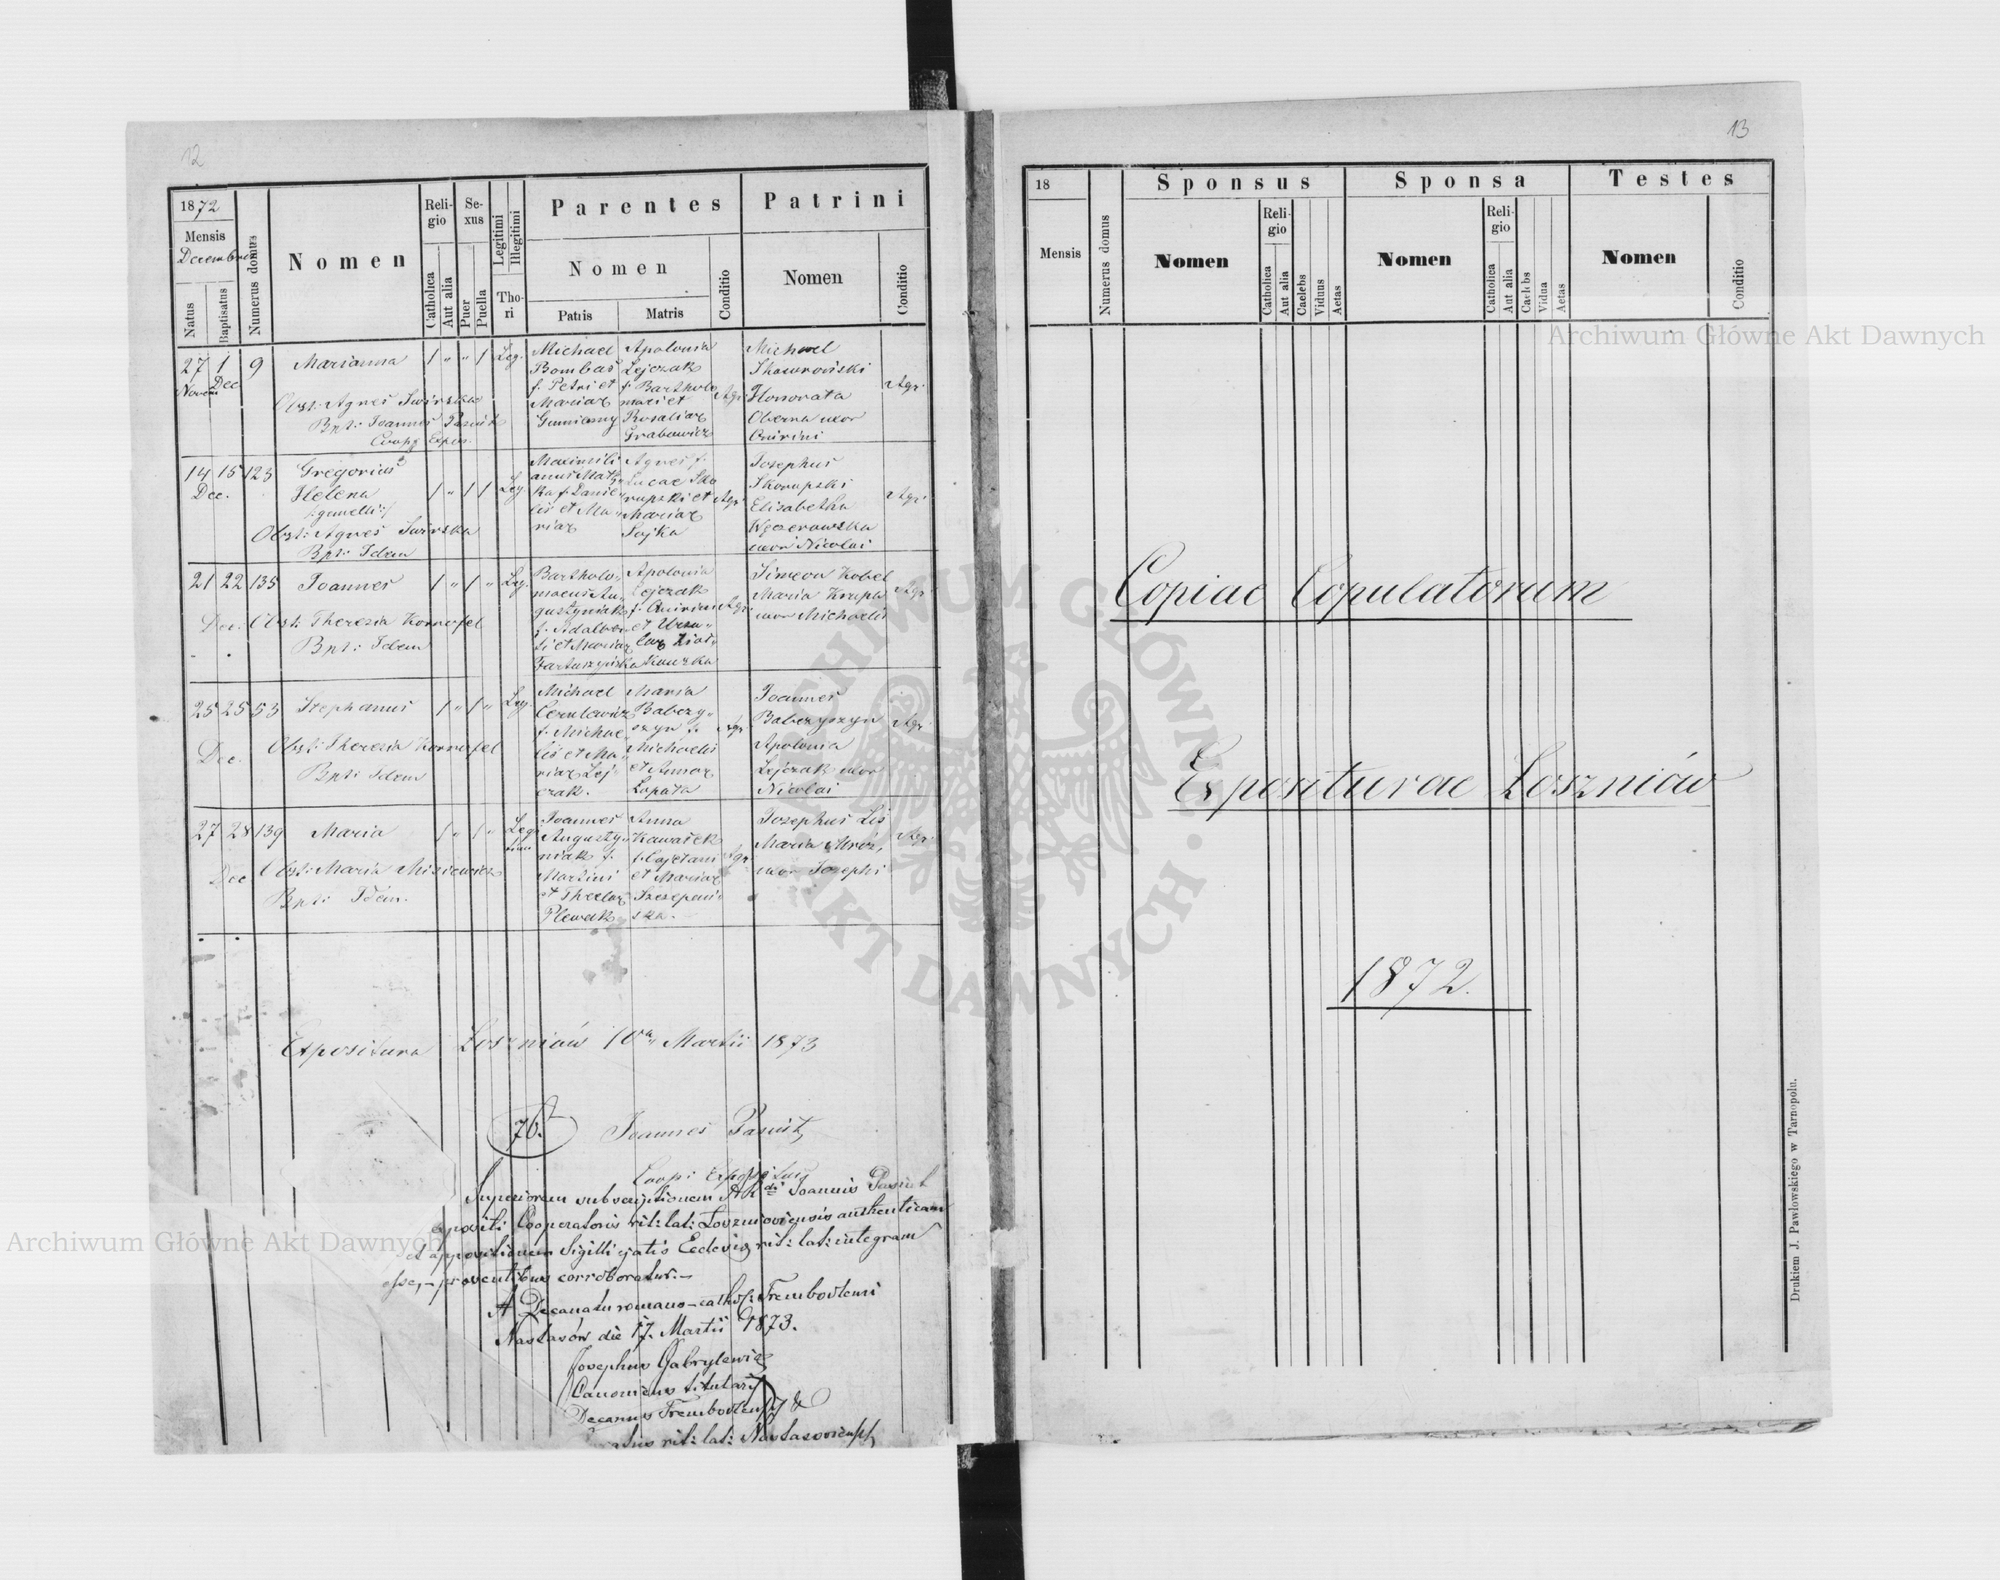 12
1872
Mensis
Decembris
Natus
Baptisatus
Numerus domus
Nomen
Religio
Catholica
Aut alia
Sexus
Puer
Puella
Legitimi
Illegitimi
Thori
Parentes
Nomen
Patris
Matris
Conditio
Patrini
Nomen
Conditio
27 Novem
1 Dec
9
Marianna
Obst: Agnes Swirska
Bpt: Joannes Pasiut
Coop Expos.
Leg.
Michael
Bombas
f. Petri et
Mariae
Apolonia
Lejczak
f. Bartholo
maei et
Rosaliae
Grabowicz
Agr.
Michael
Honorata
uxor
Agr.
14 15 123
Dec.
Gregorius
Helena
/:gemelli:/
Obst: Agnes Swirska
Bpt: Idem
Leg
Maximili
anus
f. Danie
lis et Ma
riae
Agnes f.
Lucae Sko
rupski et
Mariae
Sojka
Agr.
Josephus
Skorupski
Elisabetha
uxor Nicolai
Agr.
21 22 135
Dec.
Joannes
Obst: Theresia Kornafel
Bpt: Idem
Leg.
Bartholo
maeus Au
gustyniak
f. Adalber
ti et Mariae
Apolonia
Lejczak
f. Quirini
et Ursu
lae
Agr.
Simeon Kobel
Maria Krupa
uxor Michaelis
Agr.
25 25 53
Dec.
Stephanus
Obst: Theresia Kornafel
Bpt: Idem
Leg.
Michael
Cerulewicz
f. Michae
lis et Ma
riae Lej
czak.
Maria
Babczy
szyn f.
Michaelis
et Annae
Łopata
Agr.
Joannes
Babczyszyn
Apolonia
Lejczak uxor
Nicolai
Agr.
27 28 139
Dec
Maria
Obst: Maria Misiewicz
Bpt: Idem.
Leg
Joannes
Augusty
niak f.
Martini
et Theclae
Plewak
Anna
Kawałek
f. Cajetani
et Mariae
Szczepań
ska.
Agr.
Josephus Lis
Maria Mróz,
uxor Josephi
Agr.
Expositura Loszniów 10a Martii 1873
76.
Joannes Pasiut
Coop: Expositus
Superiorem subscriptionem ARdi Joannis Pasiut
expositi Cooperatoris rit: lat: Loszniowiensis authenticam
et appositionem Sigilli ejatis Ecclesiae rit: lat: integram
esse, praesentibus corroboratur.
A Decanatu romano-cathol: Trembowlensi
Nastasów die 17. Martii 1873.
Josephus Gabrylewicz
Canonicus titularis
Decanus Trembowlensis &
rit: lat: Nastasoviensis
13
18
Mensis
Numerus domus
Sponsus
Nomen
Religio
Catholica
Aut alia
Caelebs
Viduus
Aetas
Sponsa
Nomen
Religio
Catholica
Aut alia
Caelebs
Vidua
Aetas
Testes
Nomen
Conditio
Copiae Copulatorum
Expositurae Loszniów
1872.
Drukiem J. Pawłowskiego w Tarnopolu.
Archiwum Główne Akt Dawnych
Archiwum Główne Akt Dawnych
ARCHIWUM GŁÓWNE • AKT DAWNYCH •